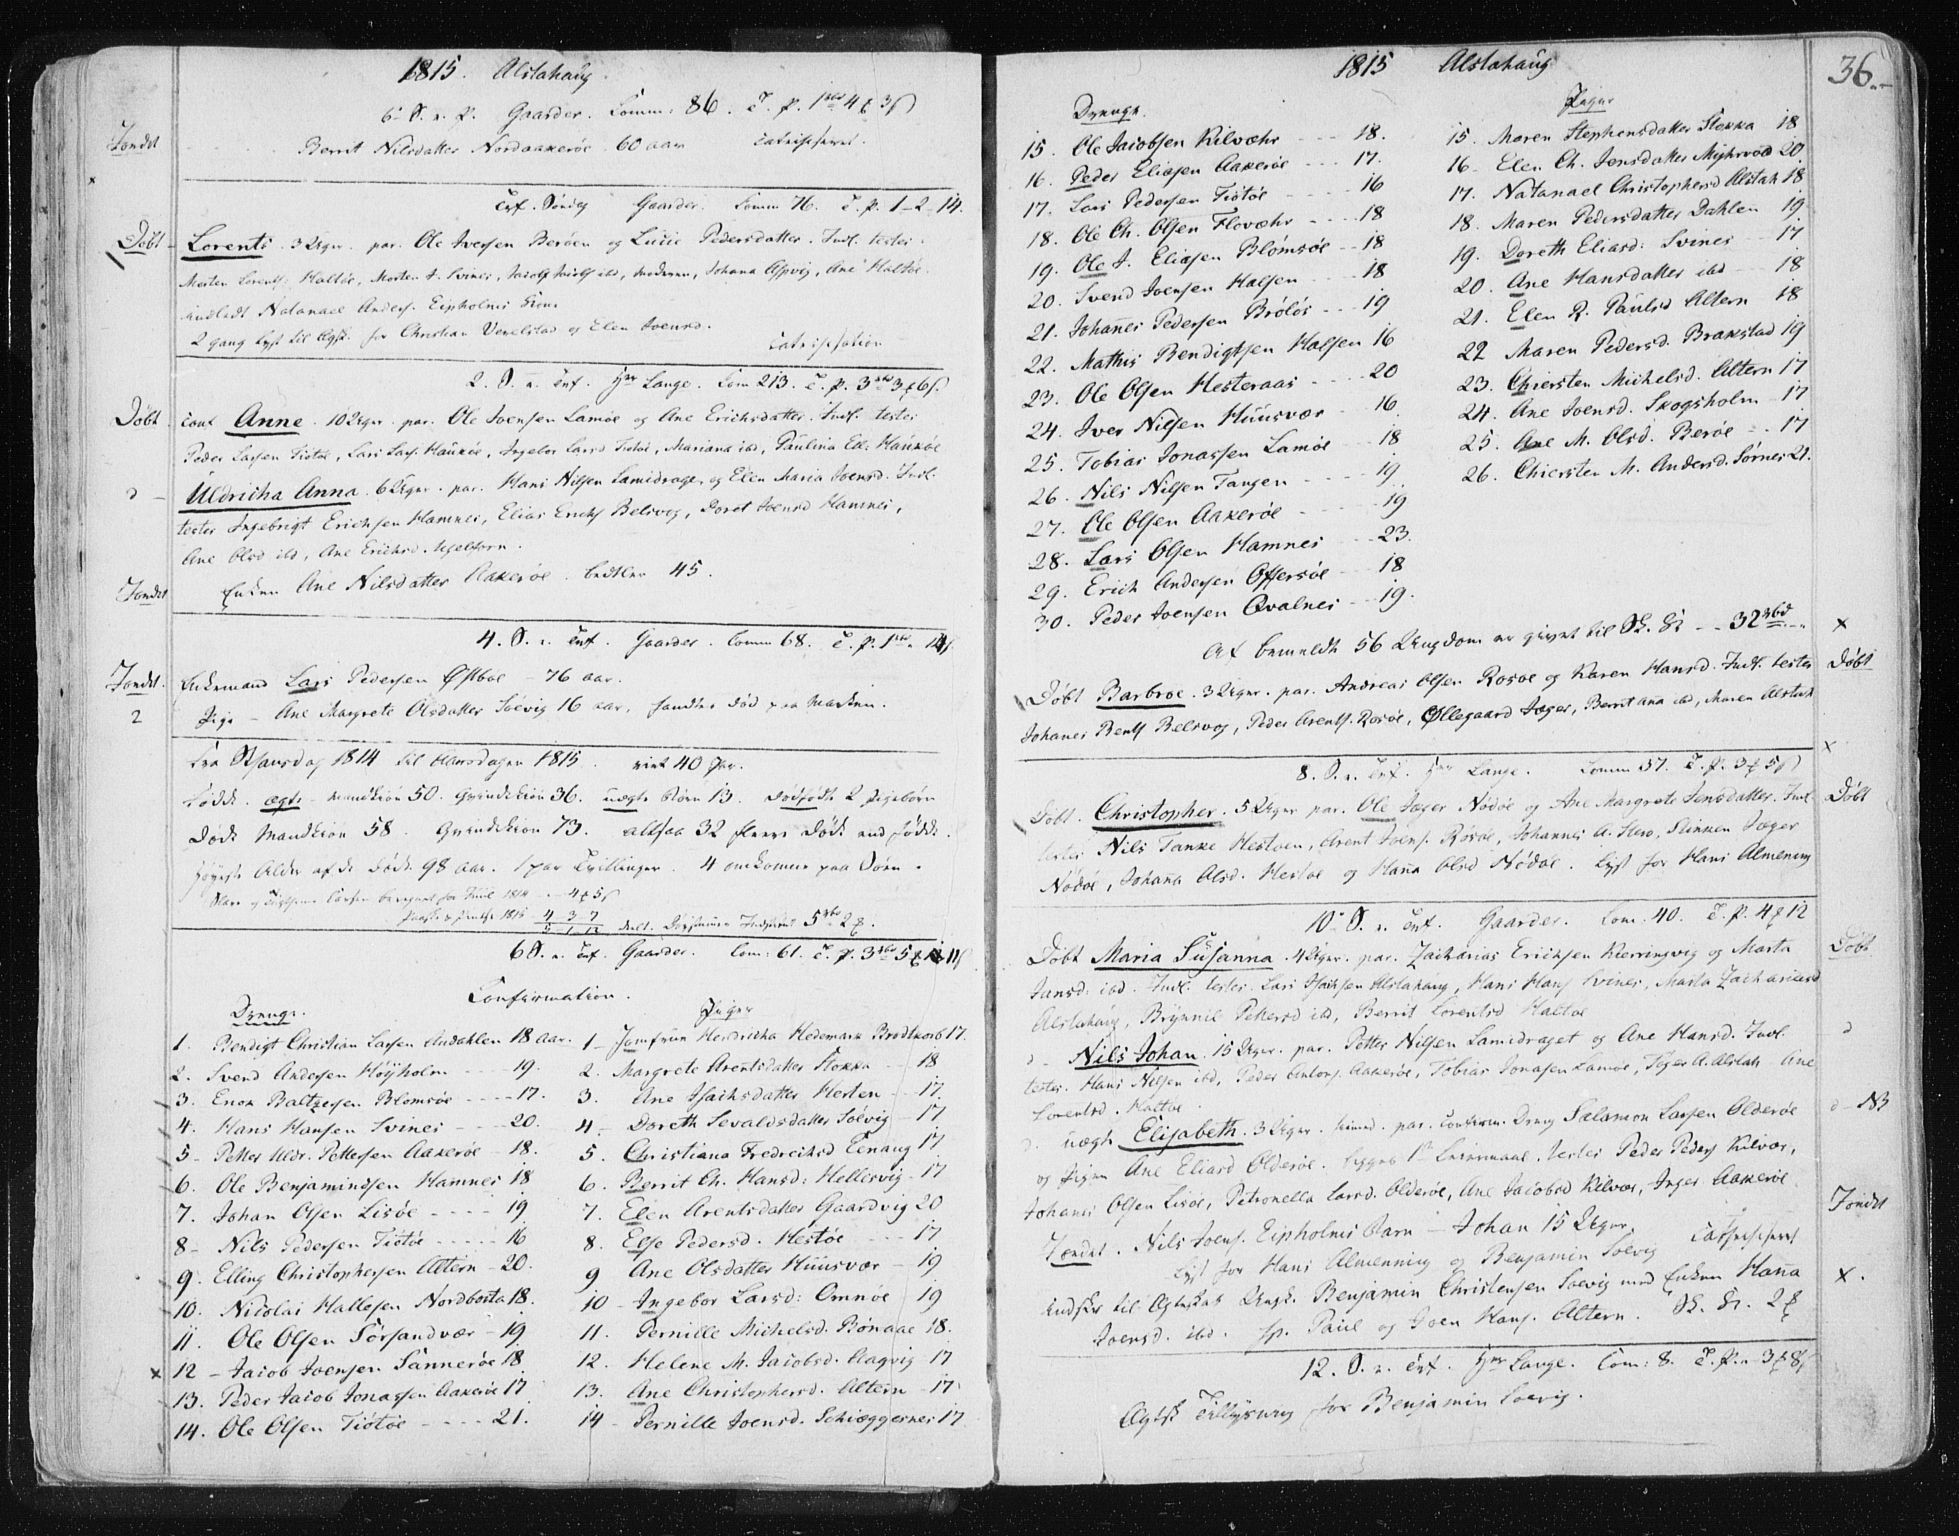 1815. Alstahaug.
6. S. n. P. Gaarder. Comm: 86. T. P. 1 4 3
Jordet
Berrit Nilsdatter Nordaakerøe 60 aar
Tref. Søndag Gaarder. Comm 76. T. P. 1-2-14.
Døbt Lorents. 3 Uger. par. Ole Iversen Berøen og Lucie Pedersdatter. Indl. testes
Morten Lorents. Haltøe, Morten J. Svines, Johana Alsvig, Ane Haltøe.
Natanael Anders. Eipholmes
2 gang lyst til Ægt. for Christian Venelstad og Elen Joensd.
Catechisation
2. S. n. Tref. Hr Lange. Com 213. T. P. 3 3 6
Døbt conf Anne. 10 Uger. par. Ole Joensen Lamøe og Ane Erichsdatter. Indl. testes
Peder Larsen Tiøtøe, Lars Lars. Haukøe, Ingebor Larsd Tiøtøe, Mariana ibd, Paulina El. Haukøe
d - Uldricha Anna. 6 Uger. par. Hans Nilsen Lamidraget og Elen Maria Joensd. Indl.
testes Ingebrigt Erichsen Hamnes, Elias Erichs Belsvog, Doret Joensd Hamnes,
Ane Olsd ibd, Ane Erichsd.
Jordet Enken Ane Nilsdatter Aakerøe. 45.
4. S. n. Tref. Gaarder. Comm 68. T. P. 1 14
Jordet. Enkemand Lars Pedersen Østboe - 76 aar.
2 Pige - Ane Margrete Olsdatter Søevig 16 aar, fandtes død paa Marken.
Fra Nyaarsdag 1814 til Nyaarsdagen 1815. viet 40 Par.
Fødde. ægte - Mandkiøn 50. Qvindekiøn 36. uægte Børn 13. Dødfødte 2 Pigebørn
Døde Mandkiøn 58. Qvindekiøn 73. altsaa 32 fleere Døde end fødde.
Høyeste Alder af de Døde 98 aar. 1 par Tvillinger. 4 omkomne paa Søen.
1814 4 5
1815 4 3 7
5 1 12 5 2
6 S. n. Tref. Gaarder. Com: 61. T. P. 3 5 11
Confirmation.
Drenge.
1. Bendigt Christian Larsen Andahlen 18 aar.
2. Svend Andersen Høyholm --- 19.
3. Enok Baltzersen Blomsøe ---- 17.
4. Hans Hansen Svines --- 20.
5- Petter Uldr. Pettersen Aakerøe - 18.
6. Ole Benjaminsen Hamnes 18
7. Johan Olsen Lisøe ---- 19
8- Nils Pedersen Tiøtøe ----- 16
9. Elling Christophersen Altern - 20.
10. Nicolai Hallesen Nordbosta 18.
11. Ole Olsen Sørsandvær - 19
x 12 - Jacob Joensen Sannerøe 18
13. Peder Jacob Jonassen Aakerøe 17
14. Ole Olsen Tiøtøe ---- 21.
Piger
1- Jomfrue Hendricha Hedemark Brodtkorb 17.
2. Margrete Arentsdatter Stokka -- 18
3. Ane Isachsdatter Hesten -- 17.
4- Doreth Sevaldsdatter Søevig - 17
5. Christiana Fredreichsd Tenaug 17
6. Berrit Ch. Hansd: Hellesvig - 17
7. Elen Arentsdatter Gaardvig 20
8. Else Pedersd. Hestøe --- 17
9 Ane Olsdatter Huusvær - 19
10 - Ingebor Larsd: Omnøe - 19
11. Pernille Michelsd. Bønaae 18.
12. Helene M. Jacobsd. Aagvig 17
13. Ane Christophersd. Altern - 17
14 - Pernille Joensd. Schieggesnes 17.
1815 Alstahaug 36.
Drenge.
15. Ole Jacobsen Kilvæhr --- 18.
16. Peder Eliasen Aakerøe --- 17.
17. Lars Pedersen Tiøtøe --- 16
18. Ole Ch. Olsen Flovæhr --- 18
19. Ole J. Eliasen Blomsøe -- 18
20. Svend Joensen Halsen --- 18
21. Johannes Pedersen Brøløs -- 19
22. Mathis Bendigtsen Halsen 16
23. Ole Olsen Hesteraas ---- 20
24. Iver Nilsen Huusvær - 16
25. Tobias Jonassen Lamøe -- 18
26. Nils Nilsen Tangen --- 19
27. Ole Olsen Aakerøe ---- 19
28. Lars Olsen Hamnes --- 23.
29. Erich Andersen Offersøe -- 18
30. Peder Joensen Qvalnes -- 19.
Piger
15. Maren Stephensdatter Stokka 18
16- Elen Ch. Jensdatter Myhrvod 20.
17. Natanael Christophersd Alstah 18
18. Maren Pedersdatter Dahlen 19
19. Doreth Eliasd: Svines - 17
20. Ane Hansdatter ibd -- 18
21. Elen R. Paulsd Altern 18
22 Maren Pedersd. Brakstad 19
23. Chiersten Michelsd. Altern 17
24. Ane Joensd. Skogsholm - 17
25. Ane M. Olsd. Berøe - 17
26. Chiersten M. Andersd. Sørnes 21.
Af bemeldte 56 Ungdom er givet til 32 x
Døbt Barbroe. 3 Uger. par. Andreas Olsen Rosøe og Karen Hansd. Indl. testes Døbt
Johanes Bents Belsvog, Peder Arents. Rosøe, Øllegaard Jæger, Berrit Ana ibd, Maren Alstah
x
8. S. n. Tref. Hr Lange. Comm 57. T. P. 3 5
Døbt. Christopher. 5 Uger par. Ole Jæger Nødøe og Ane Margrete Jensdatter. Indl. Døbt
testes Nils Tanke Hestøen, Arent Joens. Rosøe, Johannes A. Jæger
Nødøe, Johana Olsd. Hestøe og Hana Olsd Nødøe. Lyst for Hans Almening
10. S. n. Tref. Gaarder. Com. 40. T. P. 4 12
Døbt Maria Susanna. 4 Uger. par. Zacharias Erichsen Kierringvig og Marta Døbt
Jansd. ibd. Indl. testes Lars Isachsen Alstahaug, Hans Hans Svines, Marta Zachariasd
Alstahaug, Brynnil Pettersd ibd, Berrit Lorentsd Haltøe
d - Nils Johan. 15 Uger. par. Petter Nilsen Lamidraget og Ane Hansd. Indl. d
testes. Hans Nilsen ibd, Peder Antons. Aakerøe, Tobias Jonasen Lamøe, A. Alstah Ane
Lorentsd. Haltøe.
d uægte Elisabeth. 3 Uger. par. Confirm. Dreng Salamon Larsen Olderøe d - NB
og Pigen Ane Eliasd Olderøe. Leiermaal. testes Peder Peders Kilvær,
Johanes Olsen Lisøe, Petronella Larsd. Olderøe, Ane Jacobsd Kilvær, Inger Aakerøe.
Jordet. Nils Joens. Eipholmes Barn - Johan 15 Uger. Jordet
Lyst for Hans Almenning og Benjamin Soevig
til Ægteskab Ungk. Benjamin Christensen Soevig med Enken Hana x.
Joensd. ibd. sp. Paul og Joen Hans. Altern. 2
12. S. n. Tref. Hr Lange. Com: 8. T. P. 3 8
Ægtsk Tillysning for Benjamin Soevig.